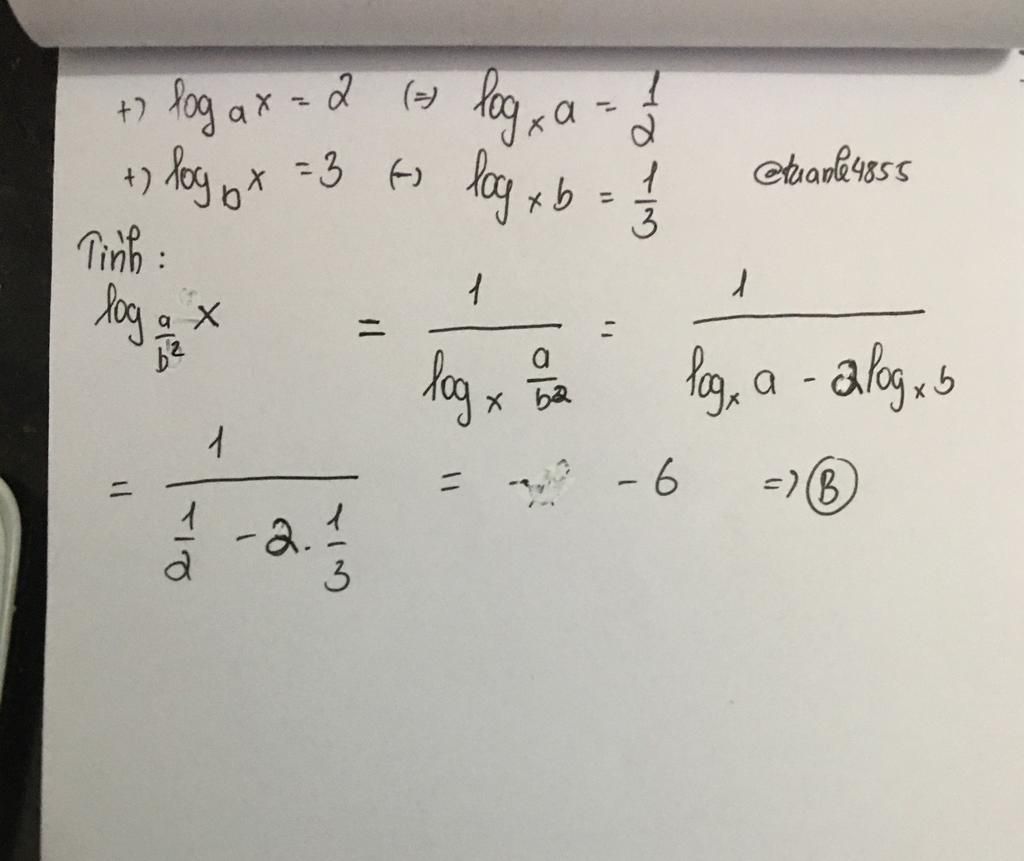 +) log_a x = 2 (=) log_x a = 1/2
+) log_b x = 3 (-) log_x b = 1/3
@tuanle4855
Tính :
log_{a/b^2} x = 1/(log_x a/b^2) = 1/(log_x a - 2log_x b)
= 1/(1/2 - 2. 1/3) = - 6 =) B